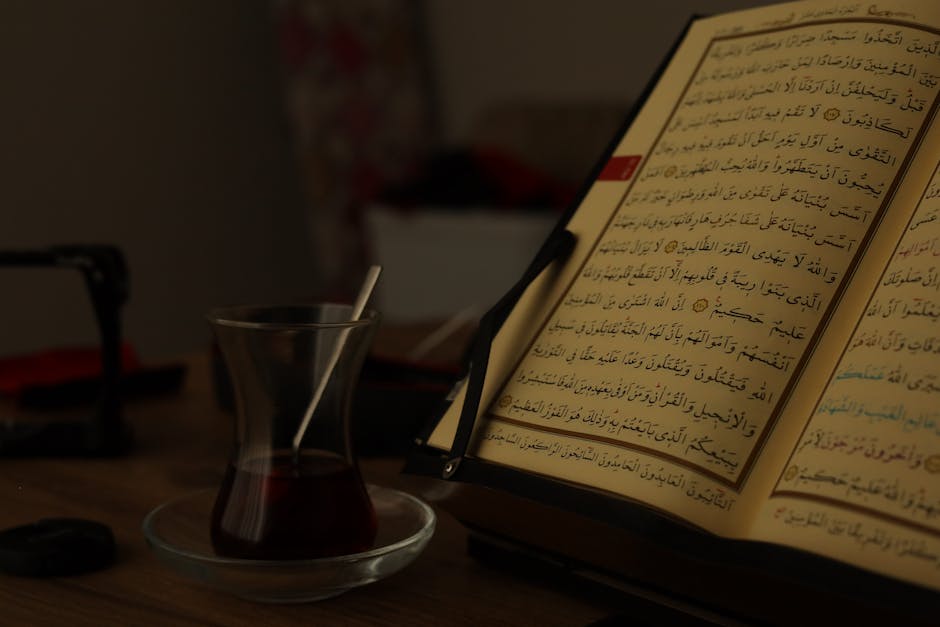 وَالَّذِينَ اتَّخَذُوا مَسْجِدًا ضِرَارًا وَكُفْرًا وَتَفْرِيقًا
بَيْنَ الْمُؤْمِنِينَ وَاِرْصَادًا لِمَنْ حَارَبَ اللّٰهَ وَرَسُولَهُ مِنْ
قَبْلُ وَلَيَحْلِفُنَّ اِنْ اَرَدْنَا اِلَّا الْحُسْنٰى وَاللّٰهُ يَشْهَدُ اِنَّهُمْ
لَكَاذِبُونَ لَا تَقُمْ فِيهِ اَبَدًا لَمَسْجِدٌ اُسِّسَ عَلَى
التَّقْوٰى مِنْ اَوَّلِ يَوْمٍ اَحَقُّ اَنْ تَقُومَ فِيهِ فِيهِ رِجَالٌ
يُحِبُّونَ اَنْ يَتَطَهَّرُوا وَاللّٰهُ يُحِبُّ الْمُطَّهِّرِينَ اَفَمَنْ
اَسَّسَ بُنْيَانَهُ عَلٰى تَقْوٰى مِنَ اللّٰهِ وَرِضْوَانٍ خَيْرٌ اَمْ مَنْ
اَسَّسَ بُنْيَانَهُ عَلٰى شَفَا جُرُفٍ هَارٍ فَانْهَارَ بِهِ فِي نَارِ جَهَنَّمَ
وَاللّٰهُ لَا يَهْدِي الْقَوْمَ الظَّالِمِينَ لَا يَزَالُ بُنْيَانُهُمُ
الَّذِي بَنَوْا رِيبَةً فِي قُلُوبِهِمْ اِلَّا اَنْ تَقَطَّعَ قُلُوبُهُمْ وَاللّٰهُ
عَلِيمٌ حَكِيمٌ اِنَّ اللّٰهَ اشْتَرٰى مِنَ الْمُؤْمِنِينَ
اَنْفُسَهُمْ وَاَمْوَالَهُمْ بِاَنَّ لَهُمُ الْجَنَّةَ يُقَاتِلُونَ فِي سَبِيلِ
اللّٰهِ فَيَقْتُلُونَ وَيُقْتَلُونَ وَعْدًا عَلَيْهِ حَقًّا فِي التَّوْرٰيةِ
وَالْاِنْجِيلِ وَالْقُرْاٰنِ وَمَنْ اَوْفٰى بِعَهْدِهِ مِنَ اللّٰهِ فَاسْتَبْشِرُوا
بِبَيْعِكُمُ الَّذِي بَايَعْتُمْ بِهِ وَذٰلِكَ هُوَ الْفَوْزُ الْعَظِيمُ
اَلتَّائِبُونَ الْعَابِدُونَ الْحَامِدُونَ السَّائِحُونَ الرَّاكِعُونَ السَّاجِدُونَ
عَسَى
اِنَّ صَلٰوتَكَ
يَعْلَمُوا اَنَّ اللّٰهَ
وَاَنَّ اللّٰهَ هُوَ
فَسَيَرَى اللّٰهُ عَمَلَكُمْ
عَالِمِ الْغَيْبِ وَالشَّهَادَةِ
وَاٰخَرُونَ مُرْجَوْنَ لِاَمْرِ
وَاللّٰهُ عَلِيمٌ حَكِيمٌ
وَكُفْرًا وَتَفْرِيقًا بَيْنَ الْمُؤْمِنِينَ